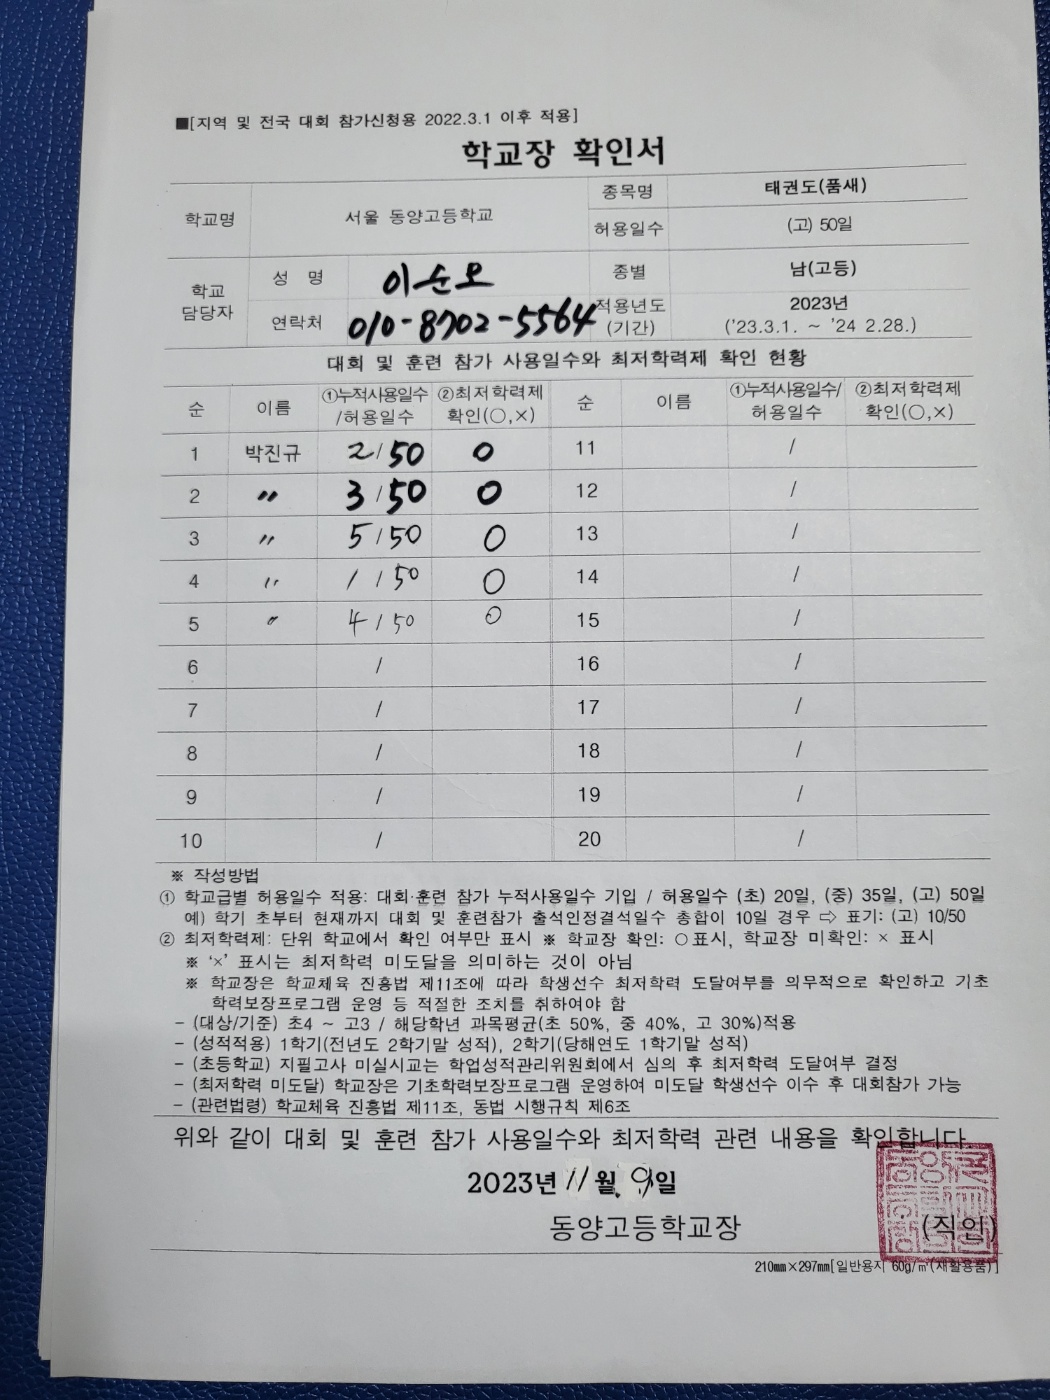 ■[지역 및 전국 대회 참가신청용 2022.3.1 이후 적용]
학교장 확인서
학교명 서울 동양고등학교 종목명 태권도(품새)
허용일수 (고) 50일
학교 담당자 성 명 이순모 종별 남(고등)
연락처 010-8702-5564 적용년도 (기간) 2023년 ('23.3.1. ~ '24 2.28.)
대회 및 훈련 참가 사용일수와 최저학력제 확인 현황
순 이름 ①누적사용일수/허용일수 ②최저학력제 확인(○,×) 순 이름 ①누적사용일수/허용일수 ②최저학력제 확인(○,×)
1 박진규 2/50 ○ 11 /
2 〃 3/50 ○ 12 /
3 〃 5/50 ○ 13 /
4 〃 1/50 ○ 14 /
5 〃 4/50 ○ 15 /
6 / 16 /
7 / 17 /
8 / 18 /
9 / 19 /
10 / 20 /
※ 작성방법
① 학교급별 허용일수 적용: 대회·훈련 참가 누적사용일수 기입 / 허용일수 (초) 20일, (중) 35일, (고) 50일
예) 학기 초부터 현재까지 대회 및 훈련참가 출석인정결석일수 총합이 10일 경우 ⇨ 표기: (고) 10/50
② 최저학력제: 단위 학교에서 확인 여부만 표시 ※ 학교장 확인: ○표시, 학교장 미확인: × 표시
※ '×' 표시는 최저학력 미도달을 의미하는 것이 아님
※ 학교장은 학교체육 진흥법 제11조에 따라 학생선수 최저학력 도달여부를 의무적으로 확인하고 기초
학력보장프로그램 운영 등 적절한 조치를 취하여야 함
- (대상/기준) 초4 ~ 고3 / 해당학년 과목평균(초 50%, 중 40%, 고 30%)적용
- (성적적용) 1학기(전년도 2학기말 성적), 2학기(당해연도 1학기말 성적)
- (초등학교) 지필고사 미실시교는 학업성적관리위원회에서 심의 후 최저학력 도달여부 결정
- (최저학력 미도달) 학교장은 기초학력보장프로그램 운영하여 미도달 학생선수 이수 후 대회참가 가능
- (관련법령) 학교체육 진흥법 제11조, 동법 시행규칙 제6조
위와 같이 대회 및 훈련 참가 사용일수와 최저학력 관련 내용을 확인합니다.
2023년 11월 9일
동양고등학교장 (직인)
210㎜×297㎜[일반용지 60g/㎡(재활용품)]